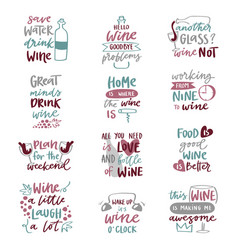 save
water
drink
wine
HELLO
wine
GOODBYE
problems
another
GLASS?
why
NOT
Great
minds
DRINK
wine
HOME
IS WHERE
the wine
IS
working
FROM
NINE TO
wine
Plan
for the
weekend
ALL YOU
need IS
LOVE
and a
bottle
OF WINE
FOOD is
good
WINE
is BETTER
Wine
a little
LAUGH
a LOT
WAKE UP
it's
wine
O'CLOCK
this WINE
IS MAKING ME
awesome